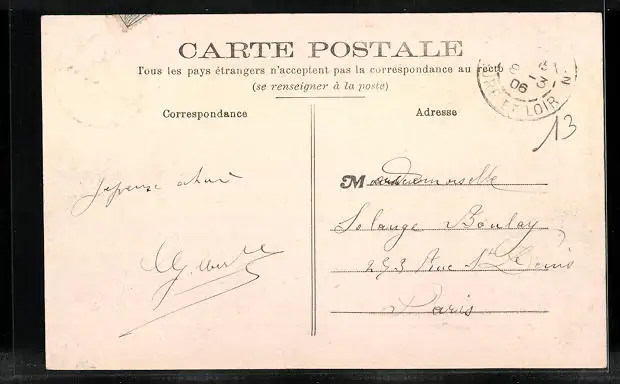 CARTE POSTALE
Tous les pays étrangers n'acceptent pas la correspondance au recto
(se renseigner à la poste)
8 -3
06
EURE ET LOIR
13
Correspondance
Adresse
Mademoiselle
Solange Boulay
253 Rue St Denis
Paris
Joyeuse